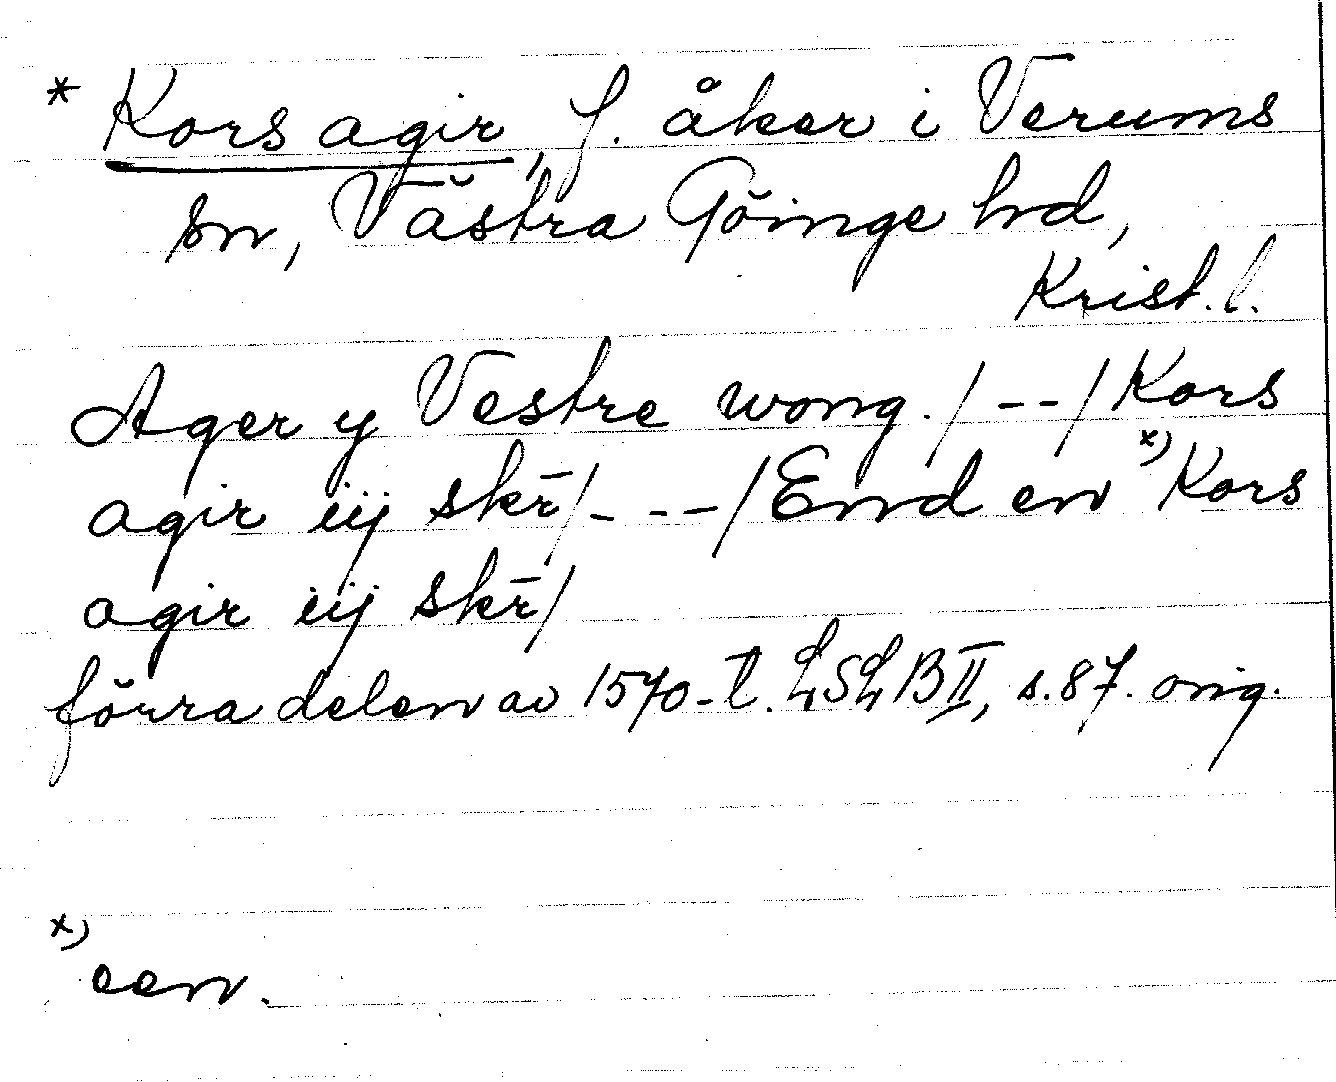 * Kors agir, f. åker i Verums
sn, Västra Göinge hd,
Krist. l.
Ager y Vestre wong. / -- / Kors
agir iij skr̄ / --- / End en x) Kors
agir iij skr̄ /
förra delen av 1570-t. LSLB II, s. 87. orig.
x)
een.